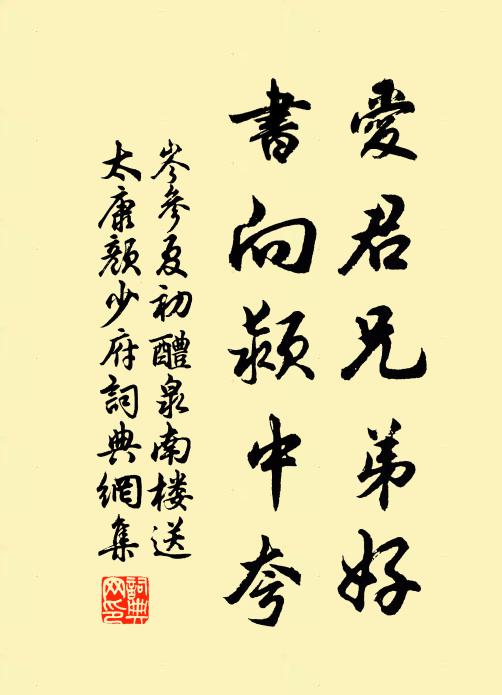 愛君兄弟好
書向潁中夸
岑參夏初醴泉南楼送
太康顏少府詞典網集
詞典網印